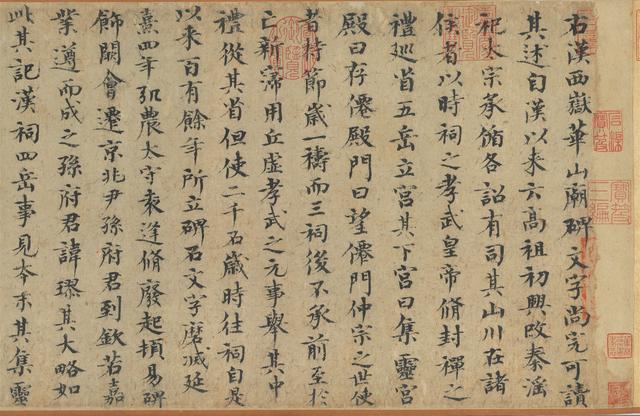 右漢西嶽華山廟碑文字尚完可讀
其述自漢以來云高祖初興改秦淫
祀太宗承循各詔有司其山川在諸
侯者以時祠之孝武皇帝脩封禪之
禮巡省五岳立宮其下宮曰集靈宮
殿曰存僊殿門曰望僊門仲宗之世使
者持節歲一禱而三祠後不承前至扵
亡新寖用丘虛孝武之元事舉其中
禮從其省但使二千石歲時往祠自是
以來百有餘年所立碑石文字磨滅延
熹四年弘農太守袁逢脩廢起頓易碑
飾闕會遷京兆尹孫府君到欽若嘉
業遵而成之孫府君諱璆其大略如
此其記漢祠四岳事見本末其集靈